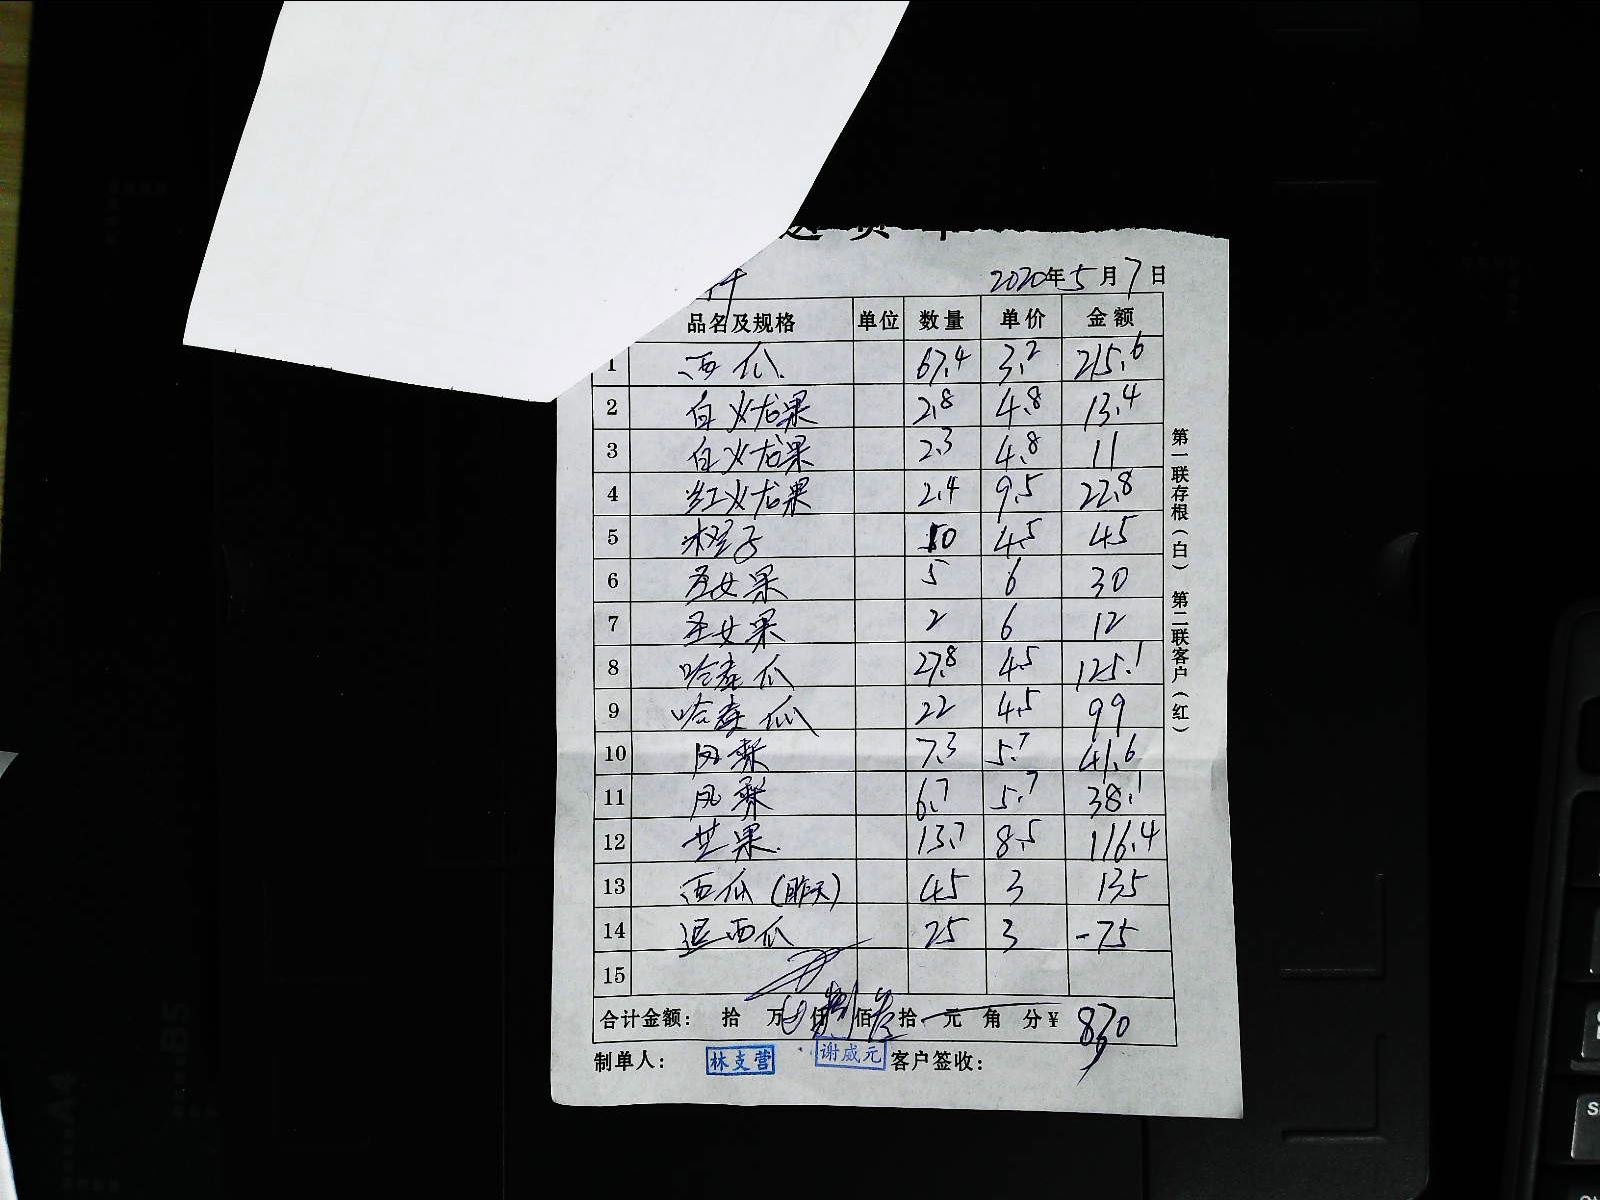 送货单
2020年5月7日
品名及规格 单位 数量 单价 金额
1 西瓜 67.4 3.2 215.6
2 白火龙果 2.8 4.8 13.4
3 白火龙果 2.3 4.8 11
4 红火龙果 2.4 9.5 22.8
5 橙子 10 4.5 45
6 圣女果 5 6 30
7 圣女果 2 6 12
8 哈蜜瓜 27.8 4.5 125.1
9 哈蜜瓜 22 4.5 99
10 凤梨 7.3 5.7 41.6
11 凤梨 6.7 5.7 38.1
12 芒果 13.7 8.5 116.4
13 西瓜(昨天) 45 3 135
14 退西瓜 25 3 -75
15
合计金额: 拾 万 仟捌佰叁拾 元 角 分¥ 830
制单人: 林支营 谢威元 客户签收:
第一联存根(白) 第二联客户(红)
A4
B5